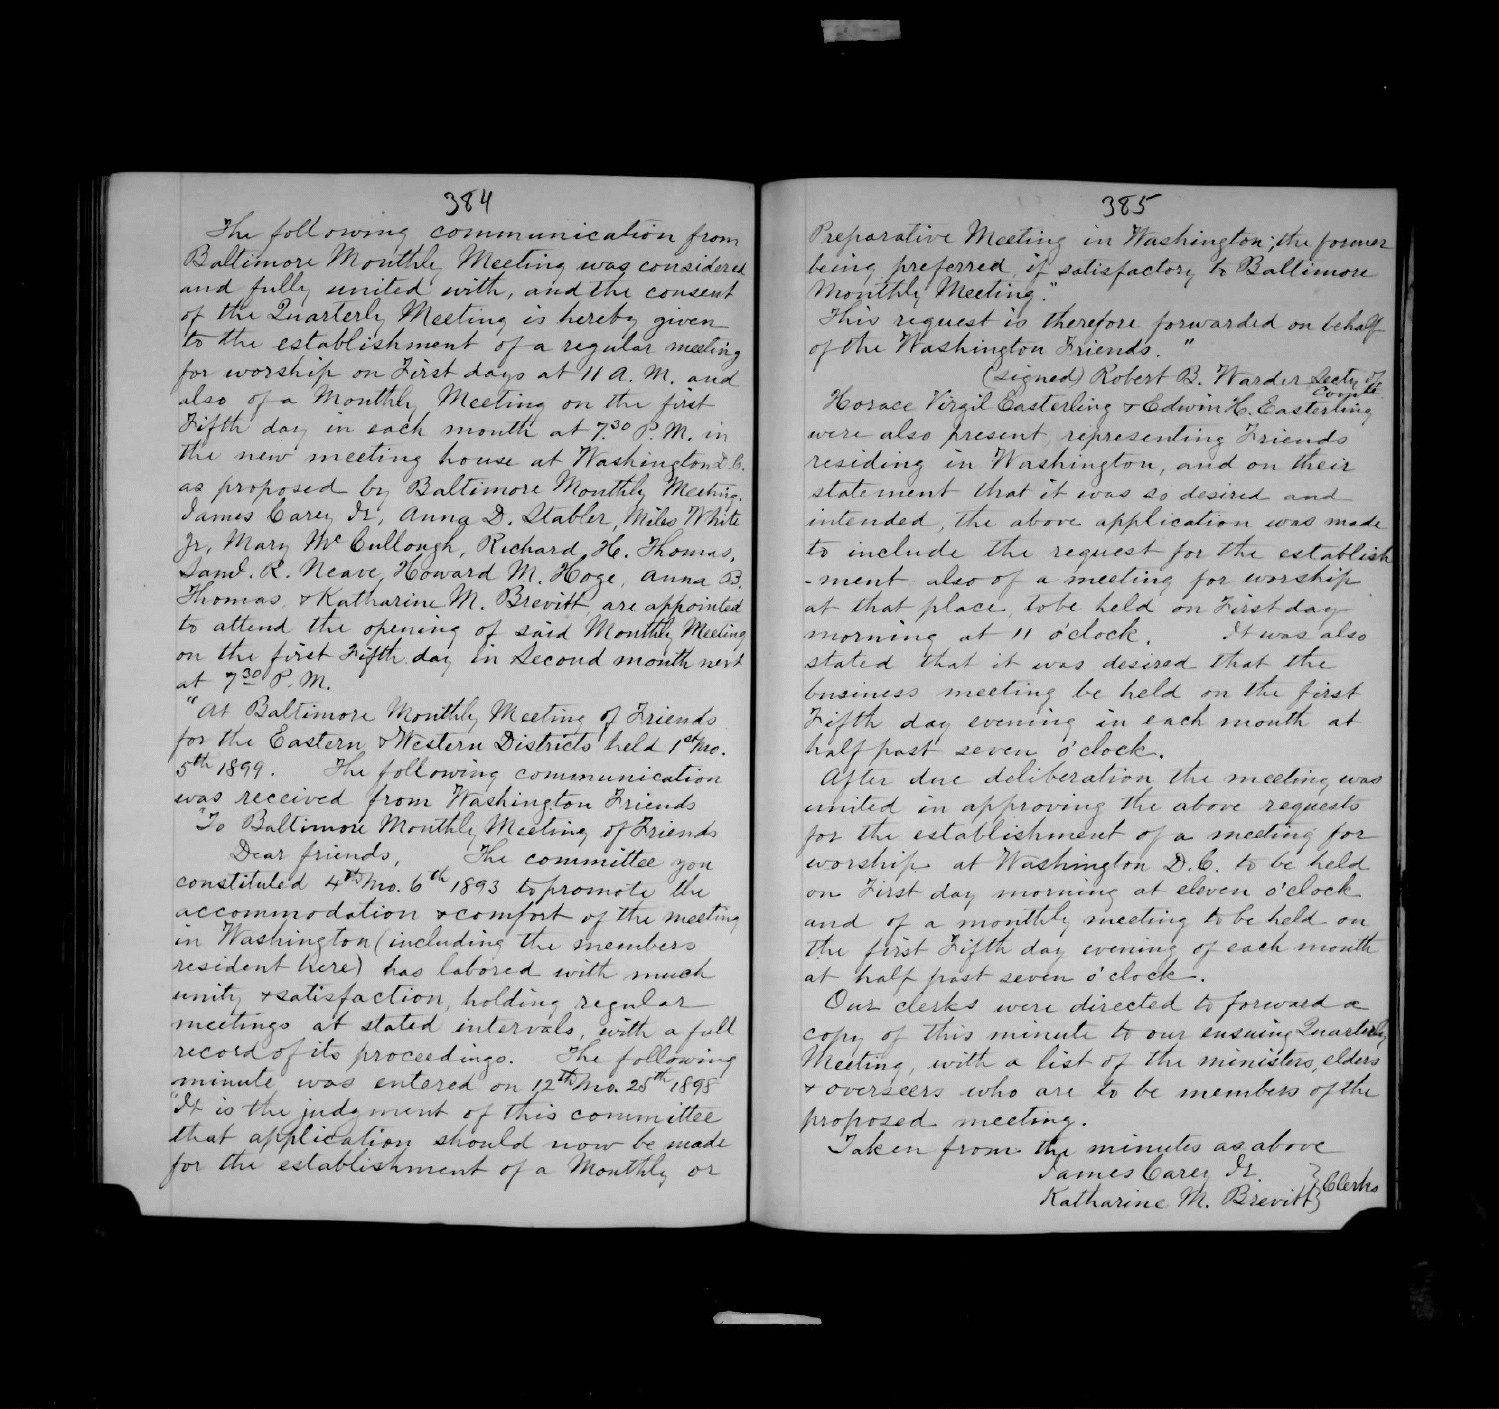 384
The following communication from
Baltimore Monthly Meeting was considered
and fully united with, and the consent
of the Quarterly Meeting is hereby given
to the establishment of a regular meeting
for worship on First days at 11 A. M. and
also of a Monthly Meeting on the first
Fifth day in each month at 7.30 P. M. in
the new meeting house at Washington D. C.
as proposed by Baltimore Monthly Meeting.
James Carey Jr, Anna D. Stabler, Miles White
Jr, Mary McCullough, Richard H. Thomas,
Saml. R. Neave, Howard M. Hoge, Anna B.
Thomas, & Katharine M. Brevitt, are appointed
to attend the opening of said Monthly Meeting
on the first Fifth day in Second month next
at 7 30 P. M.
"At Baltimore Monthly Meeting of Friends
for the Eastern & Western Districts held 1st Mo.
5th 1899. The following communication
was received from Washington Friends
"To Baltimore Monthly Meeting of Friends
Dear friends, The committee you
constituted 4th Mo. 6th 1893 to promote the
accommodation & comfort of the meeting
in Washington (including the members
resident here) has labored with much
unity & satisfaction, holding regular
meetings at stated intervals, with a full
record of its proceedings. The following
minute was entered on 12th Mo. 25th 1898
"It is the judgment of this committee
that application should now be made
for the establishment of a Monthly or
385
Preparative Meeting in Washington; the former
being preferred, if satisfactory to Baltimore
Monthly Meeting."
This request is therefore forwarded on behalf
of the Washington Friends."
(signed) Robert B. Warder Secty of
Comte
Horace Virgil Easterling & Edwin H. Easterling
were also present, representing Friends
residing in Washington, and on their
statement that it was so desired and
intended, the above application was made
to include the request for the establish
-ment also of a meeting for worship
at that place, to be held on First day
morning at 11 o'clock. It was also
stated that it was desired that the
business meeting be held on the first
Fifth day evening in each month at
half past seven o'clock.
After due deliberation the meeting was
united in approving the above requests
for the establishment of a meeting for
worship at Washington D. C. to be held
on First day morning at eleven o'clock
and of a monthly meeting to be held on
the first Fifth day evening of each month
at half past seven o'clock.
Our clerks were directed to forward a
copy of this minute to our ensuing Quarterly
Meeting, with a list of the ministers, elders
& overseers who are to be members of the
proposed meeting.
Taken from the minutes as above
James Carey Jr. } Clerks
Katharine M. Brevitt }